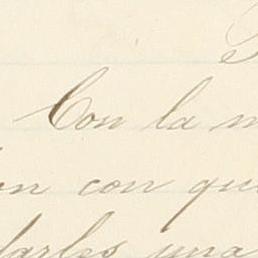 Con la m
on con qui
darles una